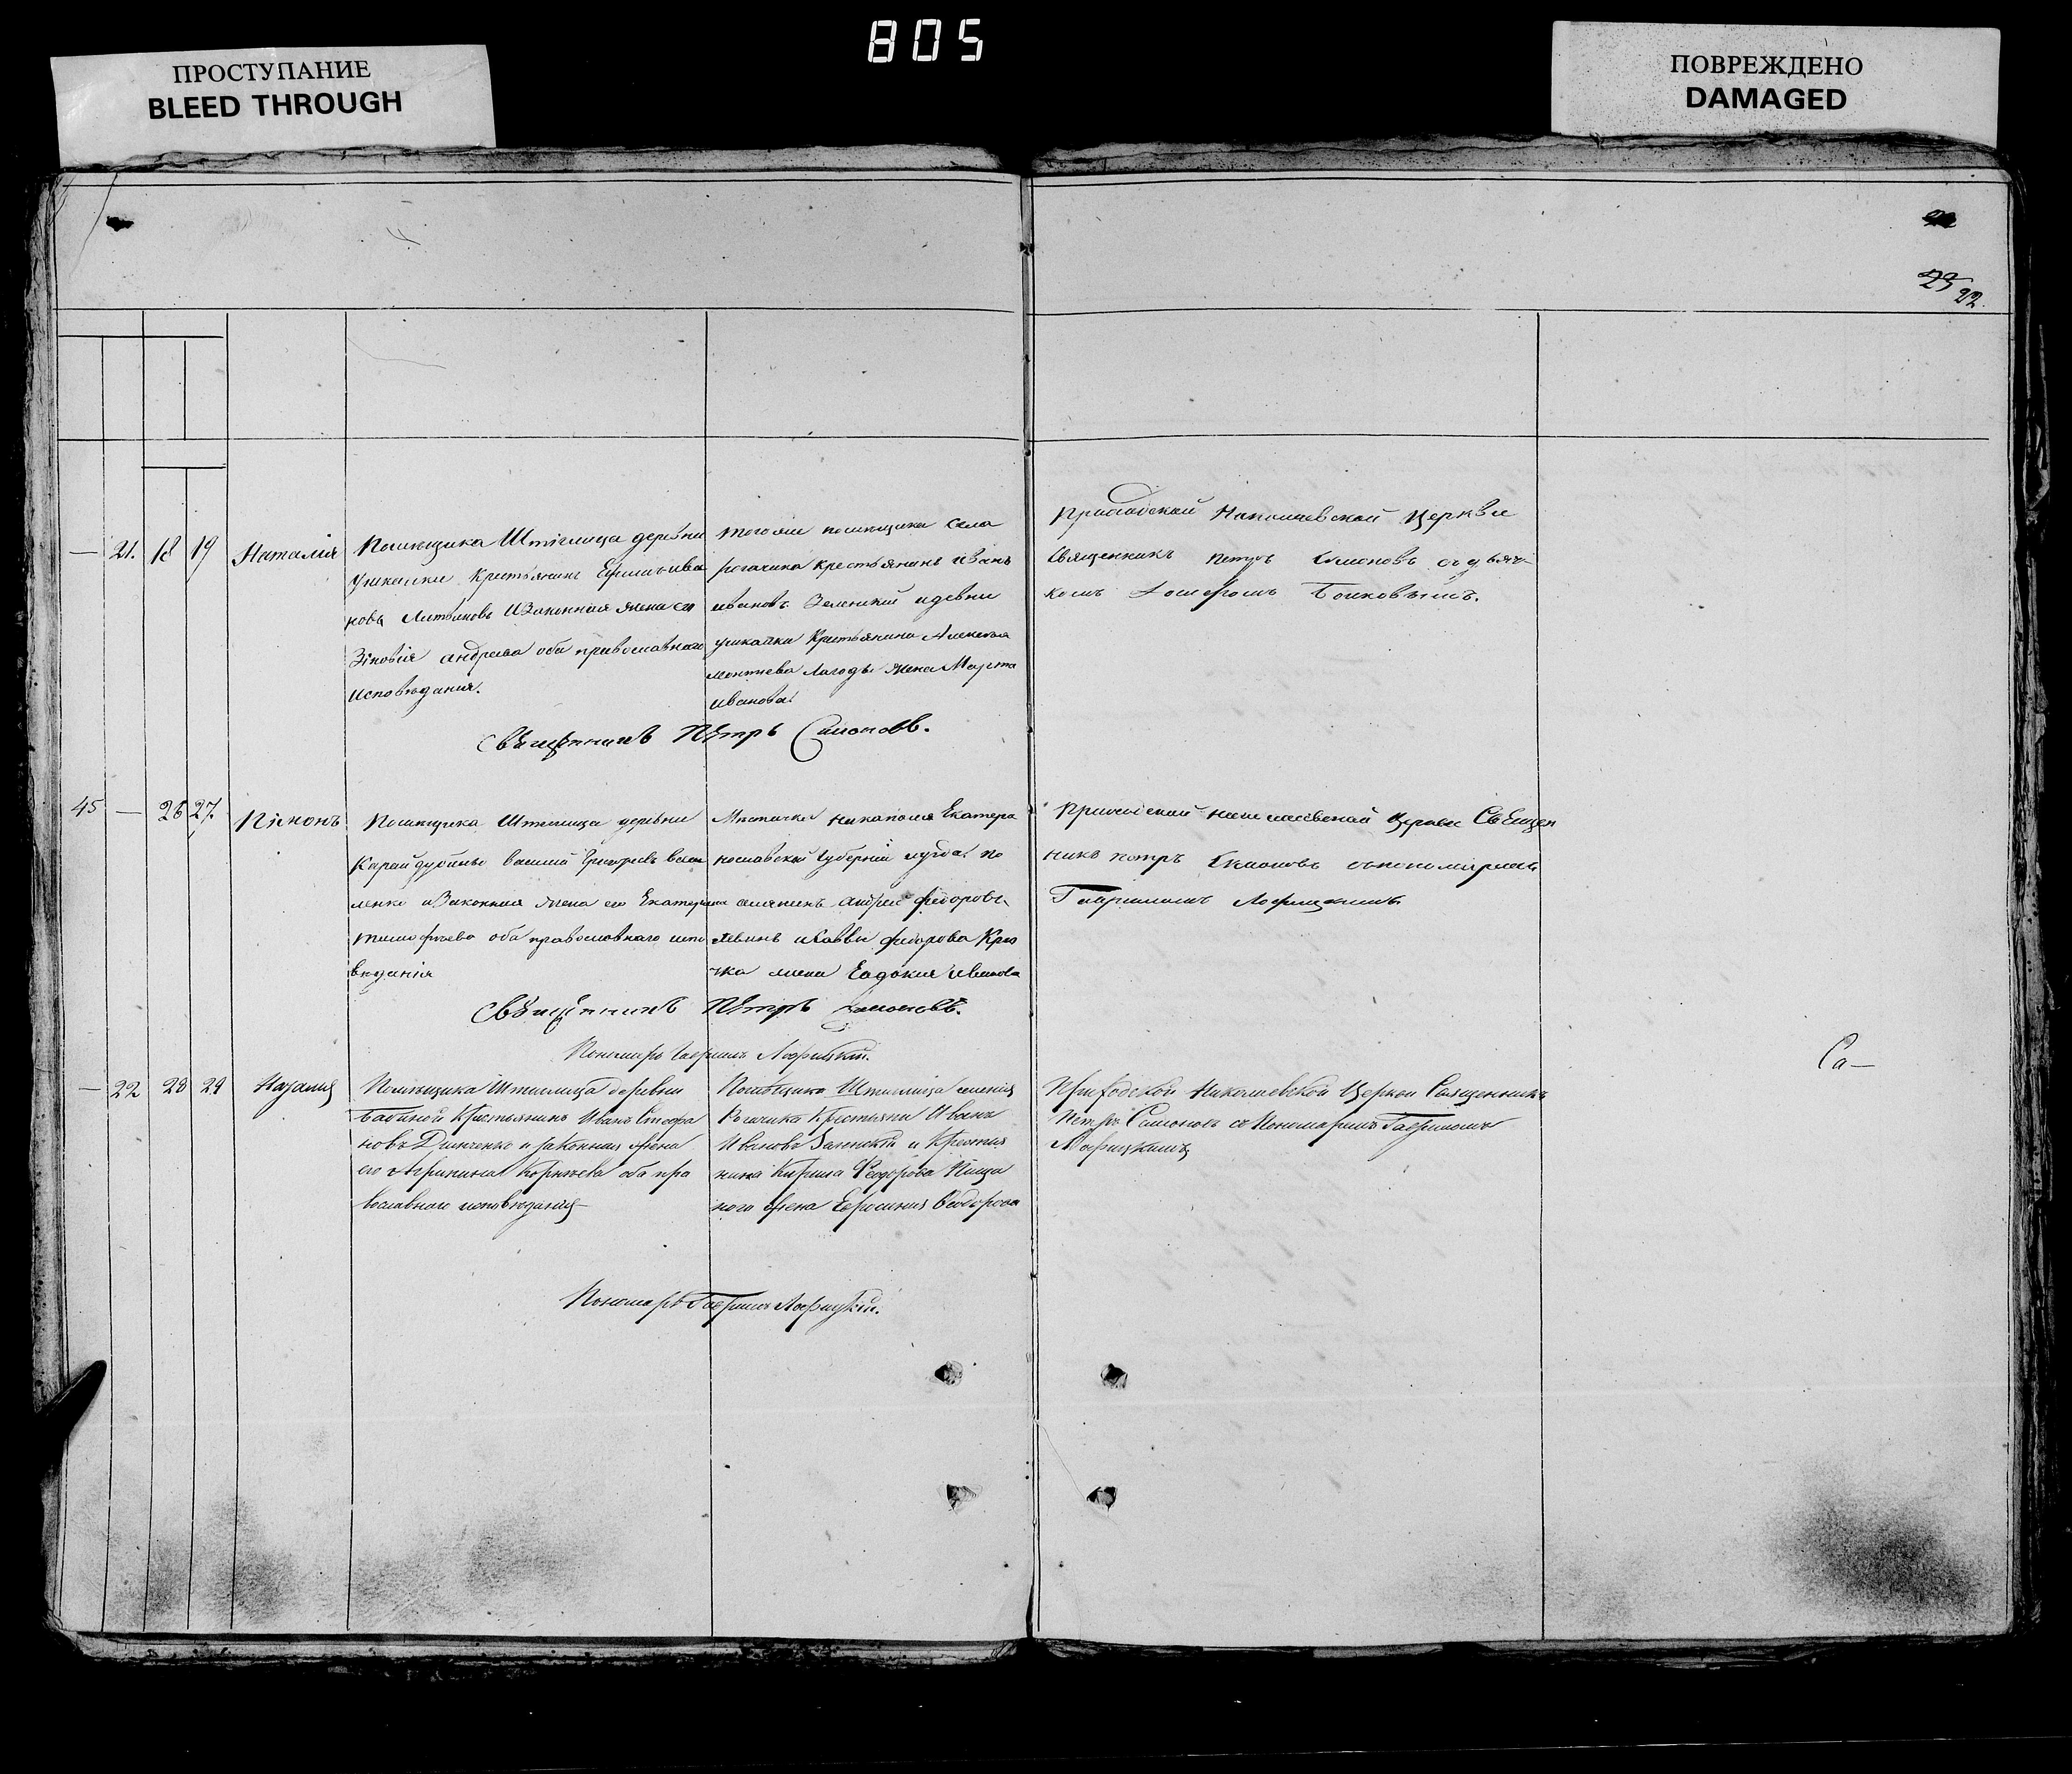 805
ПРОСТУПАНИЕ
BLEED THROUGH
ПОВРЕЖДЕНО
DAMAGED
22
— 21. 18 19 Наталія
Помѣщика Штиглица деревни
Ушкалки Крестьянинъ Ефимъ Ива
новъ Литвиновъ и Законная жена его
Зіновія Андреева оба православнаго
исповѣданія.
тогожъ помѣщика села
рогачика крестьянинъ иванъ
ивановъ Зеленскій и девни
ушкалки Крестьянина Алексея
Лагоды жена Марта
иванова
Приходской Николаевской Церкви
Священникъ петръ Симоновъ съ дьяч-
комъ
Священникъ Пѣтръ Симоновъ.
45 — 26 27 Пимонъ
Помѣщика Штиглица деревни
Карайдубины василій Григорьевъ васи
ленко и Законная жена его Екатерина
тимофѣева оба православнаго испо
вѣданія
Мѣстечка никополя Екатери
нославской Губерніи уѣзда по
селянинъ андрей федоровъ
и Саввы федорова Кри
жена Евдокія иванова
Приходской николаевской Церкви Священ
никъ петръ Симоновъ съ пономаремъ
Гавриломъ Лофицкимъ
Священникъ Пѣтръ Симоновъ.
Пономарь Гаврилъ Лофицкій.
— 22 28 29
Помѣщика Штиглица деревни
Бабиной Крестьянинъ Иванъ Стефа
новъ и законная жена
его Агрипина Корнѣева оба пра
вославнаго исповѣданія
Помѣщика Штиглица селенія
Рогачика Крестьяни Иванъ
Ивановъ Зеленскій и Крестья
нина Кирила Феодорова Пища
ного жена Ефросинія Феодорова
Приходской Николаевской Церкви Священникъ
Петръ Симоновъ съ Пономаремъ Гавриломъ
Лофицкимъ
Са—
Пономарь Гаврилъ Лофицкій.